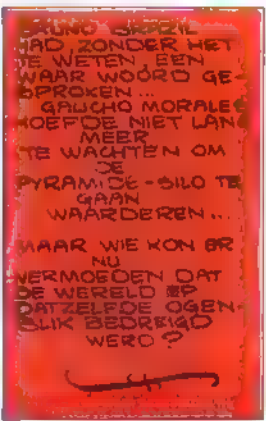 BRUNO BRAZIL
HAD ZONDER HET
TE WETEN EEN
WAAR WOORD GE-
SPROKEN...
GAUCHO MORALES
HOEFDE NIET LAN-
MEER
TE WACHTEN OM
DE
PYRAMIDE-SILO TE
GAAN
WAARDEREN...
MAAR WIE KON ER
NU
VERMOEDEN DAT
DE WERELD OP
DATZELFDE OGEN-
BLIK BEDREIGD
WERD?